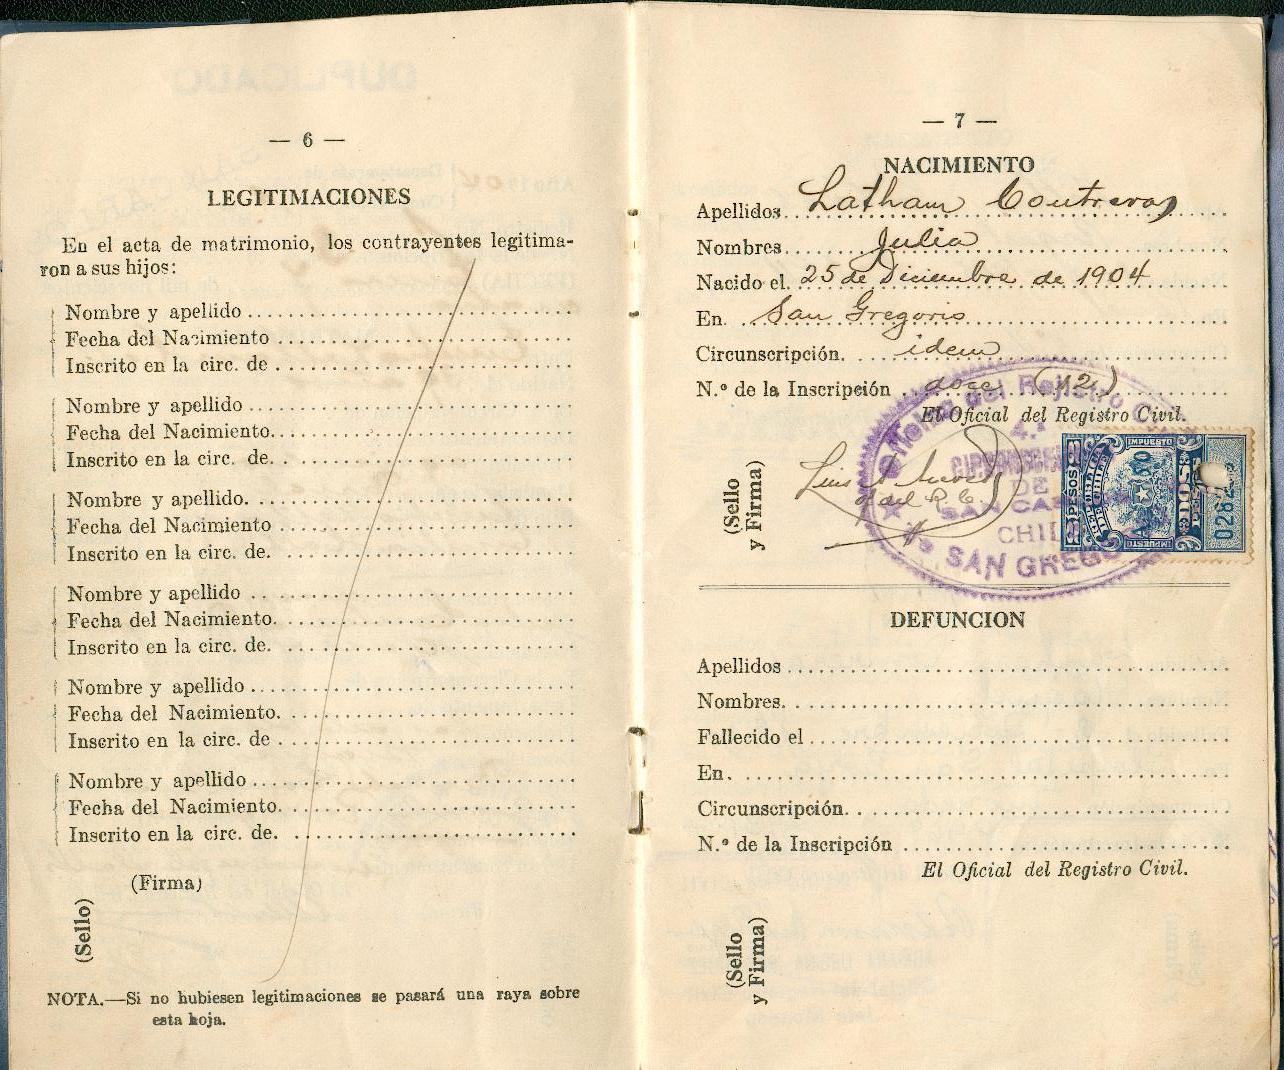 — 6 —
LEGITIMACIONES
En el acta de matrimonio, los contrayentes legitima-
ron a sus hijos:
Nombre y apellido
Fecha del Nacimiento
Inscrito en la circ. de
Nombre y apellido
Fecha del Nacimiento.
Inscrito en la circ. de.
Nombre y apellido.
Fecha del Nacimiento
Inscrito en la circ. de.
Nombre y apellido
Fecha del Nacimiento.
Inscrito en la circ. de.
Nombre y apellido
Fecha del Nacimiento.
Inscrito en la circ. de
Nombre y apellido
Fecha del Nacimiento.
Inscrito en la circ. de.
(Firma)
(Sello)
NOTA.—Si no hubiesen legitimaciones se pasará una raya sobre
esta hoja.
— 7 —
NACIMIENTO
Apellidos Latham Contreras
Nombres Julia
Nacido el 25 de Diciembre de 1904
En. San Gregorio
Circunscripción. idem
N.º de la Inscripción doce (12)
El Oficial del Registro Civil.
(Sello
y Firma)
Luis
Of del R. C.
Oficina del Rejistro
4.ª
CIRCUNSCR
DE
SAN CA
CHIL
SAN GREGO
IMPUESTO
2 PESOS 2
DOS
PESOS
IMPUESTO
DEFUNCION
Apellidos
Nombres.
Fallecido el
En.
Circunscripción.
N.º de la Inscripción
El Oficial del Registro Civil.
(Sello
y Firma)